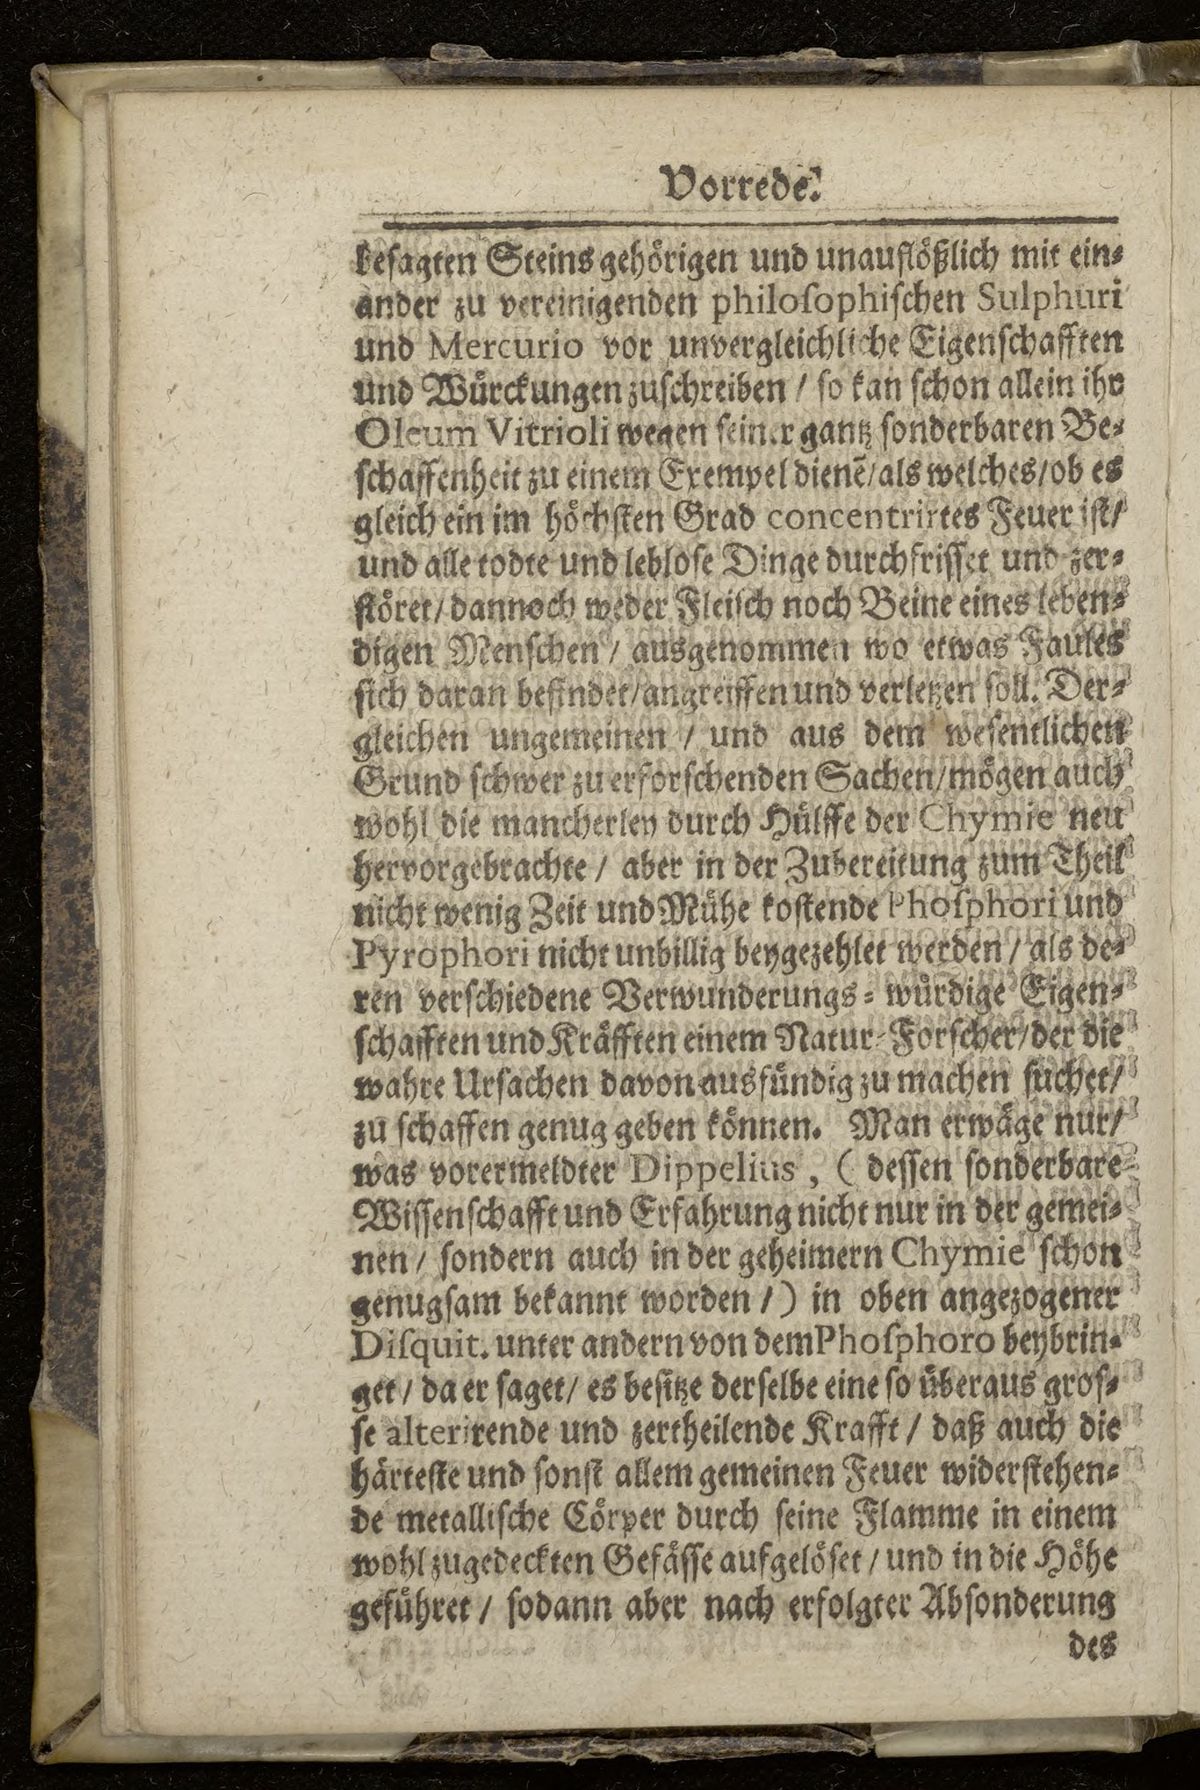 Vorrede.
besagten Steins gehörigen und unauflößlich mit ein⸗
ander zu vereinigenden philosophischen Sulphuri
und Mercurio vor unvergleichliche Eigenschafften
und Würckungen zuschreiben / so kan schon allein ihr
Oleum Vitrioli wegen seiner gantz sonderbaren Be⸗
schaffenheit zu einem Exempel dienẽ / als welches / ob es
gleich ein im höchsten Grad concentrirtes Feuer ist /
und alle todte und leblose Dinge durchfrisset und zer⸗
störet / dannoch weder Fleisch noch Beine eines leben⸗
digen Menschen / ausgenommen wo etwas Faules
sich daran befindet / angreiffen und verletzen soll. Der⸗
gleichen ungemeinen / und aus dem wesentlichen
Grund schwer zu erforschenden Sachen / mögen auch
wohl die mancherley durch Hülffe der Chymie neu
hervorgebrachte / aber in der Zubereitung zum Theil
nicht wenig Zeit und Mühe kostende Phosphori und
Pyrophori nicht unbillig beygezehlet werden / als de⸗
ren verschiedene Verwunderungs⸗würdige Eigen⸗
schafften und Kräfften einem Natur⸗Forscher / der die
wahre Ursachen davon ausfündig zu machen suchet /
zu schaffen genug geben können. Man erwäge nur /
was vorermeldter Dippelius , ( dessen sonderbare
Wissenschafft und Erfahrung nicht nur in der gemei⸗
nen / sondern auch in der geheimern Chymie schon
genugsam bekannt worden / ) in oben angezogener
Disquit. unter andern von dem Phosphoro beybrin⸗
get / da er saget / es besitze derselbe eine so überaus gros⸗
se alterirende und zertheilende Krafft / daß auch die
härteste und sonst allem gemeinen Feuer widerstehen⸗
de metallische Cörper durch seine Flamme in einem
wohl zugedeckten Gefässe aufgelöset / und in die Höhe
geführet / sodann aber nach erfolgter Absonderung
des